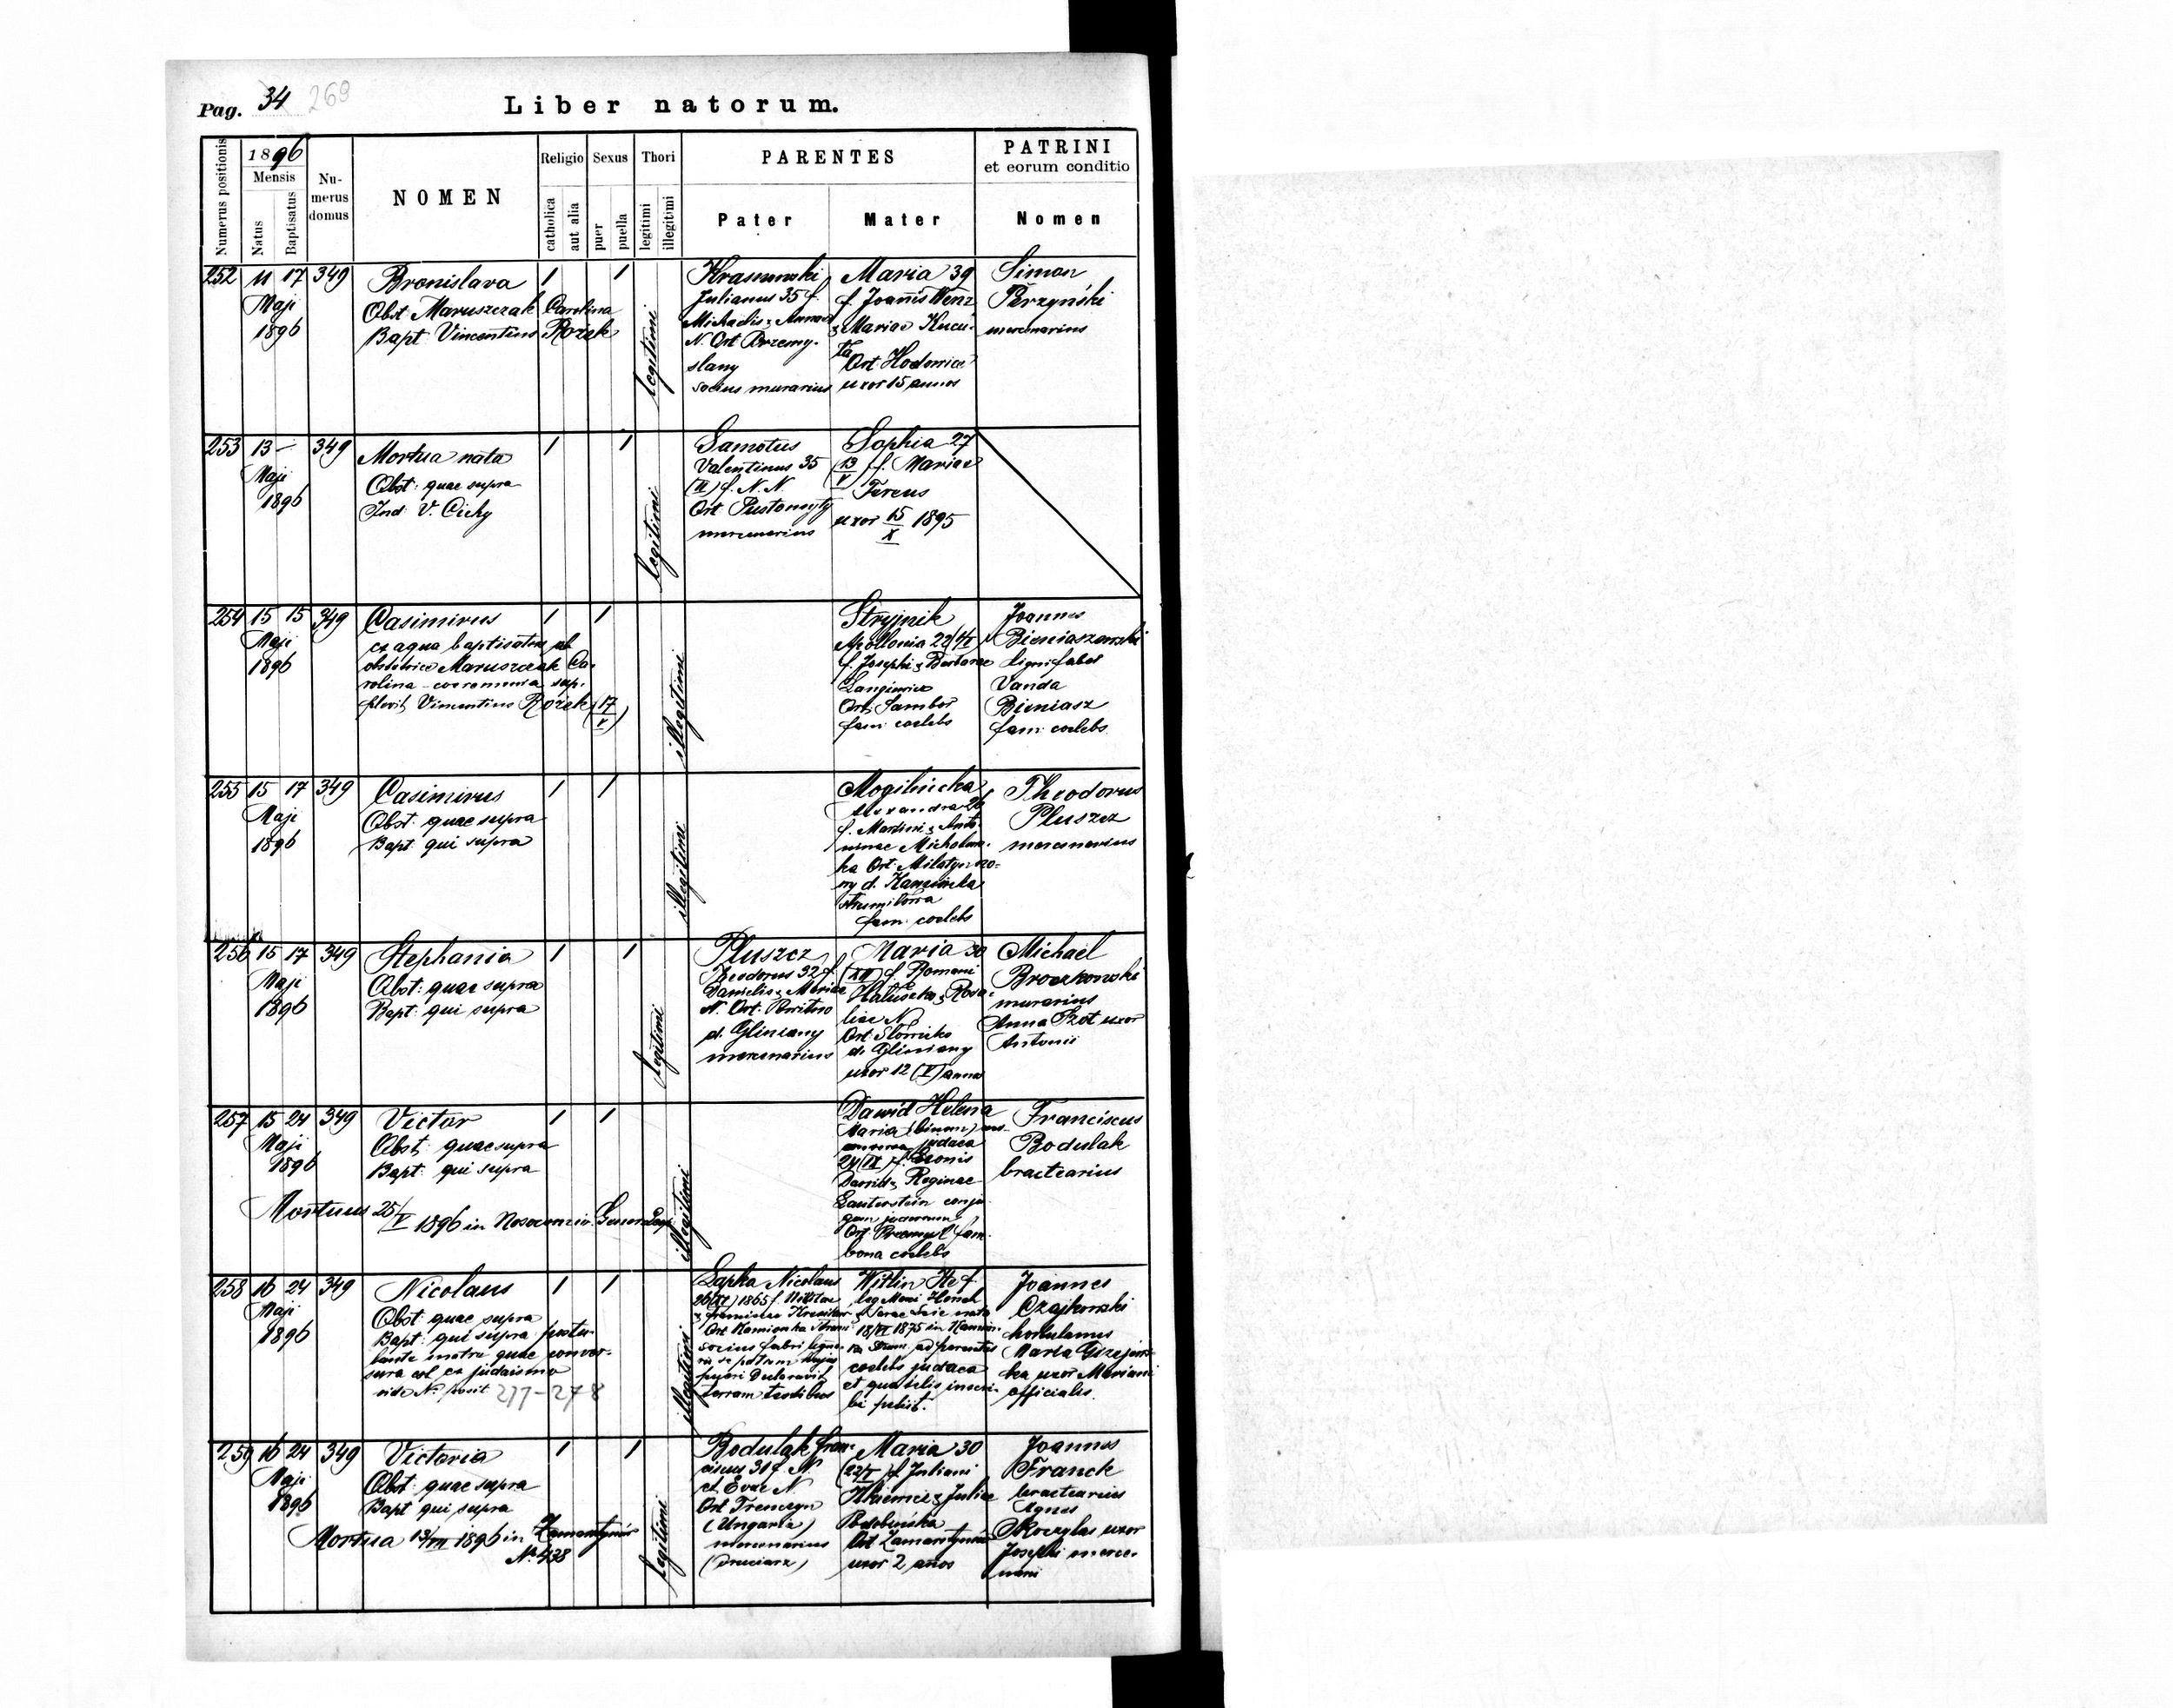 Pag. 34 269
Liber natorum.
Numerus positionis
1896
Mensis
Natus
Baptisatus
Nu-
merus
domus
NOMEN
Religio
catholica
aut alia
Sexus
puer
puella
Thori
legitimi
illegitimi
PARENTES
Pater
Mater
PATRINI
et eorum conditio
Nomen
252 11 17 349
Maji
1896
Bronislava
Obst Maruszczak Carolina
Bapt Vincentius Rożek
1 1
legitimi
Julianus 35 f.
Michaelis & Annae
N. Ort Przemy-
slany
socius murarius
Maria 39
f. Joannis Wenz
& Mariae Kucu-
ła
Ort Hodowica
uxor 15 annos
Simon
Perzyński
mercenarius
253 13 - 349
Maji
1896
Mortua nata
Obst: quae supra
Ind: V. Cichy
1 1
legitimi
Samotus
Valentinus 35
(II) f. N. N.
Ort Pustomyty
mercenarius
Sophia 27
(13/V) f. Mariae
Fereus
uxor 15/X 1895
254 15 15 349
Maji
1896
Casimirus
ex aqua baptisatus ab
obstetrice Maruszczak Ca-
rolina - ceremonia sup-
plevit Vincentius Rożek (17/V)
1 1
illegitimi
Stryjnik
Apollonia 22
f. Josephi & Barbarae
Ort Sambor
fam: coelebs
Joannes
Bieniaszewski
lignifaber
Vanda
Bieniasz
fam: coelebs
255 15 17 349
Maji
1896
Casimirus
Obst: quae supra
Bapt: qui supra
1 1
illegitimi
Mogilnicka
Alexandra 26
f. Martini & Anto-
ninae
ka Ort: Milatyn no-
wy d. Kamionka
strumiłowa
fam: coelebs
Theodorus
Pluszcz
mercenarius
256 15 17 349
Maji
1896
Stephania
Obst: quae supra
Bapt: qui supra
1 1
legitimi
Pluszcz
Theodorus 32 f.
Danielis & Mariae
N. Ort:
d. Gliniany
mercenarius
Maria 30
(XII) f. Romani
Hałuszka & Rosa-
liae N.
Ort:
d. Gliniany
uxor 12 (V) annos
Michael
Broczkowski
murarius
Anna Kot uxor
Antonii
257 15 24 349
Maji
1896
Victor
Obst: quae supra
Bapt: qui supra
Mortuus 25/V 1896 in Nosocomio General
1 1
illegitimi
Dawid Helena
Maria (binom)
judaea
24 (IX) f. Leonis
Dawid & Reginae
Lauterstein conju-
gum judaeorum
Ort: Przemyśl fam:
bona coelebs
Franciscus
Bodulak
bractearius
258 16 24 349
Maji
1896
Nicolaus
Obst: quae supra
Bapt: qui supra postu-
lante matre quae conver-
sura est ex judaismo
vide N. posit 277-278
1 1
illegitimi
Łapka Nicolaus
26 (XI) 1865 f.
Ort Kamionka
socius fabri
se patrem hujus
pueri declaravit
coram testibus
Witlin Ite f.
leg Hersch
& Sarae nata
18/VI 1875 in Kamion-
ka Strum. ad parentes
coelebs judaea
et qua talis inscri-
bi petiit.
Joannes
Czajkowski
hortulanus
Maria
ka uxor Mariani
officialis
259 16 24 349
Maji
1896
Victoria
Obst: quae supra
Bapt qui supra
Mortua 13/VII 1896 in Zamarstynów
№ 438
1 1
legitimi
Bodulak Fran-
ciscus 31 f. N.
et Evae N
Ort Trenczyn
(Ungaria)
mercenarius
(Druciarz)
Maria 30
(22/I) f. Juliani
& Juliae
Podobińska
Ort Zamarstynów
uxor 2 años
Joannes
Franck
bractearius
Agnes
Skoczylas uxor
Josephi merce-
narii